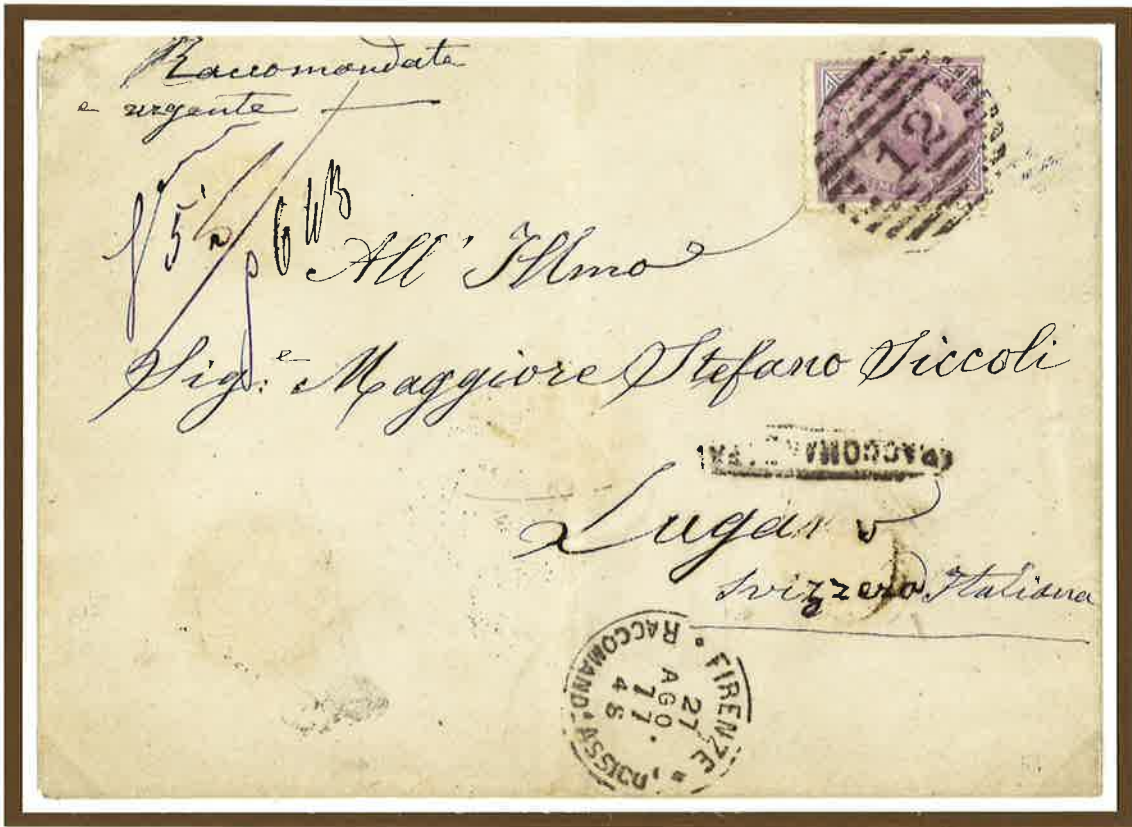 Raccomandata
e urgente
12
All' Illmo
Sig:e Maggiore Stefano Siccoli
RACCOMANDATA
Lugano
Svizzera Italiana
FIRENZE
RACCOMAND. ASSICU.
27 AGO. 77 4 S